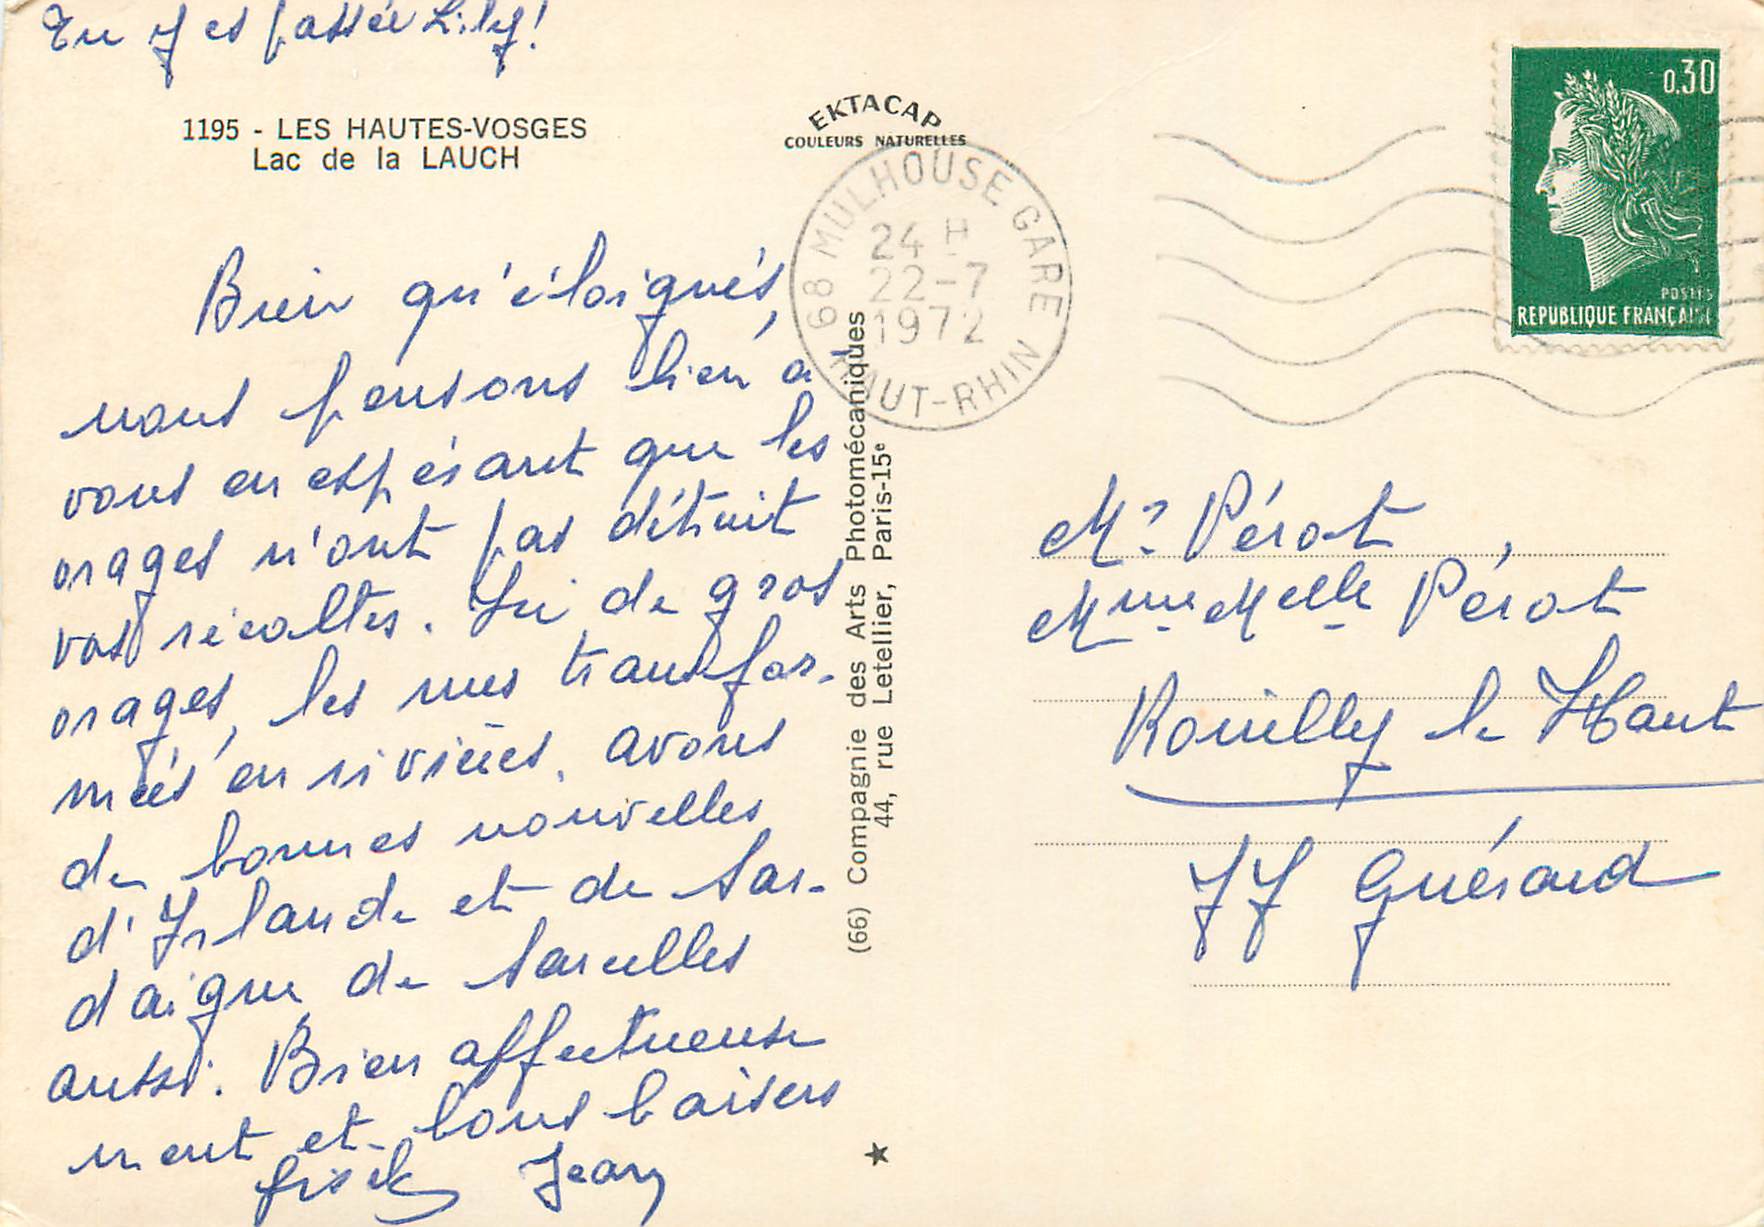 Tu y es passée Lily!
1195 - LES HAUTES-VOSGES
Lac de la LAUCH
EKTACAP
COULEURS NATURELLES
68 MULHOUSE GARE
24 H
22-7
1972
HAUT-RHIN
0,30
POSTES
REPUBLIQUE FRANÇAISE
Bien qu'éloignés,
nous pensons bien à
vous en espérant que les
orages n'ont pas détruit
vos récoltes. Ici de gros
orages, les rues transfor-
mées en rivières. avons
de bonnes nouvelles
d'Irlande et de Sar-
daigne, de Sarcelles
aussi. Bien affectueuse
ment et bons baisers
Jean
(66) Compagnie des Arts Photomécaniques
44, rue Letellier, Paris-15e
Mr Pérot,
Mme Melle Pérot
Rouilly le Haut
JJ Guérard